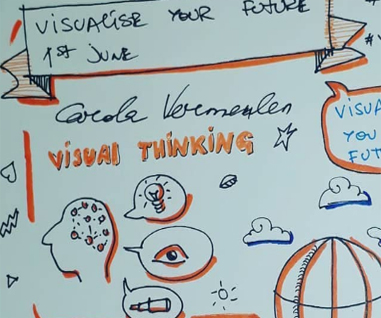 VISUALISE YOUR FUTURE
1ST JUNE
Carola Vermeulen
VISUAL THINKING
VISUA
YOU
FUT